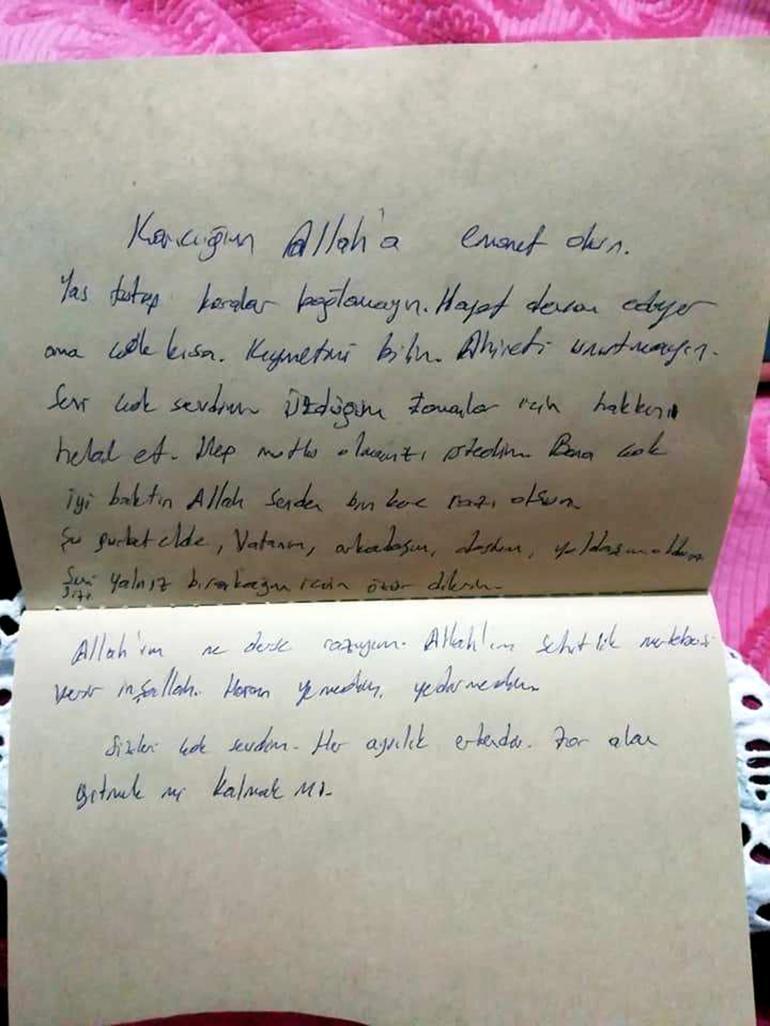 Karıcığım Allah'a emanet olun.
Yas tutup karalar bağlamayın. Hayat devam ediyor
ama çok kısa. Kıymetini bilin. Ahireti unutmayın.
Seni çok sevdim Üzdüğüm zamanlar için hakkını
helal et. Hep mutlu olmanızı istedim Bana çok
iyi baktın Allah senden bin kere razı olsun.
Şu gurbet elde, Vatanım, arkadaşım, dostum, yoldaşım oldun
Seni yalnız bırakacağım için özür dilerim.
Sizi
Allah'ım ne derse razıyım. Allah'ım Şehitlik mertebesi
verir inşallah. Haram yemedim, yedirmedim.
Sizleri çok sevdim. Her ayrılık erkendir. Zor olan
gitmek mi Kalmak mı.